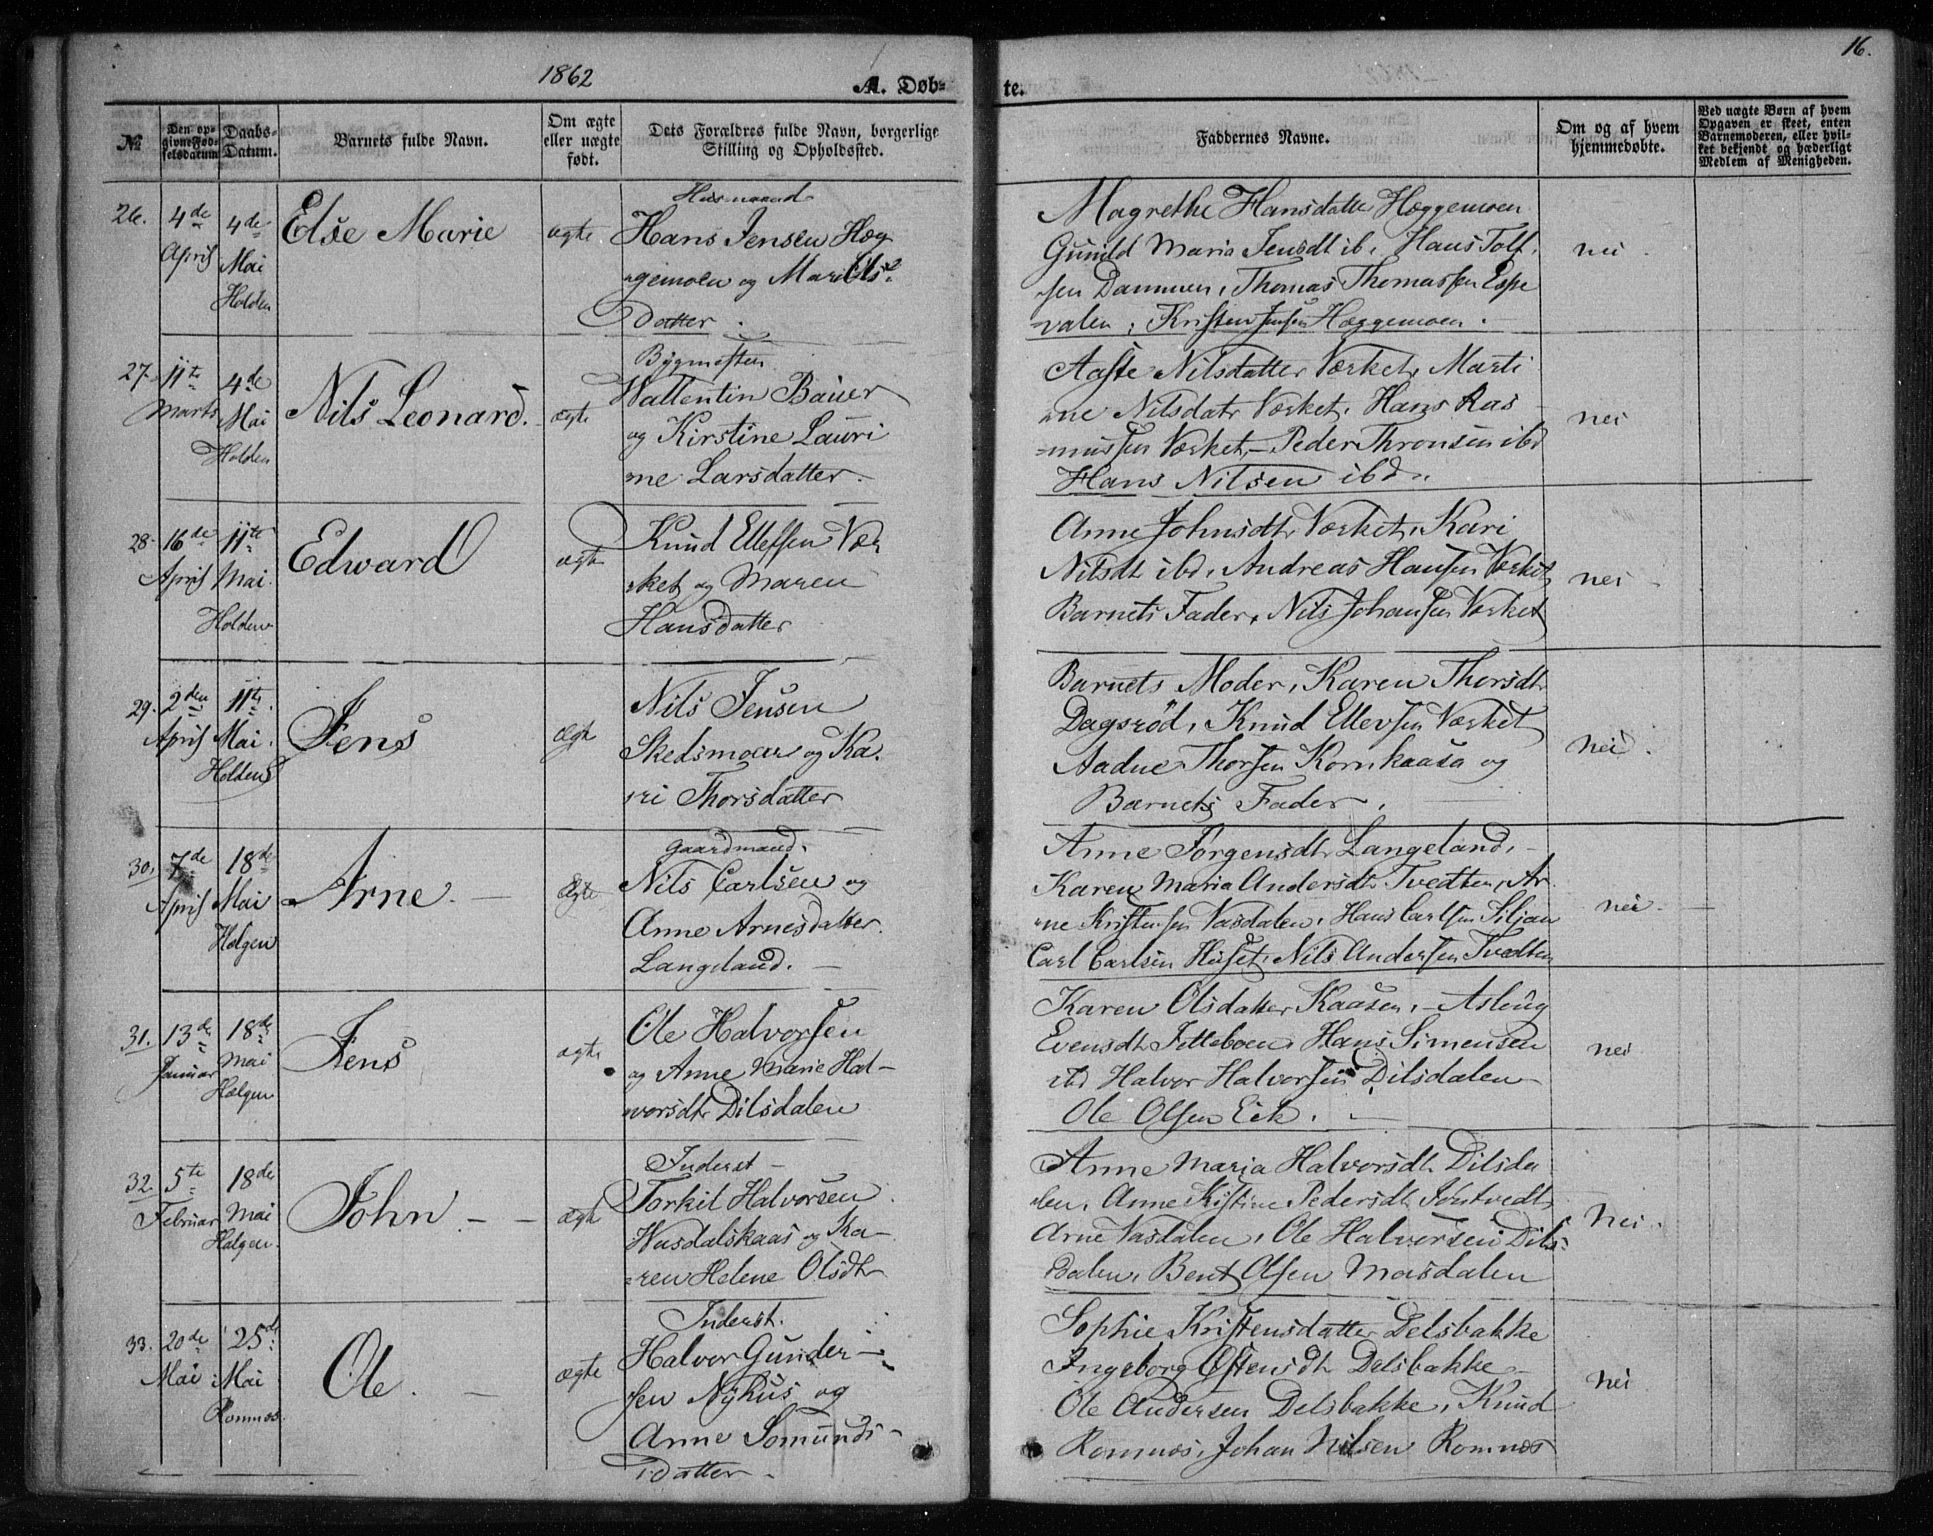 16.
1862
A. Døb-
te.
№
Den op-
givne Fød-
selsdatum
Daabs-
Datum.
Barnets fulde Navn.
Om ægte
eller uægte
født.
Dets Forældres fulde Navn, borgerlige
Stilling og Opholdssted.
Faddernes Navne.
Om og af hvem
hjemmedøbte.
Ved uægte Børn af hvem
Opgaven er skeet, enten
Barnemoderen, eller hvil-
ket bekjendt og hæderligt
Medlem af Menigheden.
26.
4de
April
4de
Mai
Holden
Else Marie
ægte
Husmand
Hans Jensen Hæg
gemoen og Mari Ols-
datter.
Magrethe Hansdatter Hæggemoen
Gunild Maria Jensdt ib. Hans Tolf
sen Dammen, Thomas Thomassen Espe
valen, Kristen Jensen Hæggemoen.
nei
27.
11te
Marts
4de
Mai
Holden
Nils Leonard.
ægte
Bygmester
Wallentin Bauer
og Kirstine Lauri
ne Larsdatter.
Aaste Nilsdatter Værket, Marti
ne Nilsdatr Værket, Hans Ras
mussen Værket, - Peder Thronsen ibd
Hans Nilsen ibd.
nei
28.
16de
April
11te
Mai.
Holden
Edward
ægte
Knud Ellefsen Vær
ket og Maren
Hansdatter
Anne Johnsdt Værket, Kari
Nilsdt ibd, Andreas Hansen Værket,
Barnets Fader, Nils Johansen Værket
nei
29.
2den
April
11te
Mai.
Holden
Jens
ægte
Nils Jensen
Skedsmoen og Ka.
ri Thorsdatter
Barnets Moder, Karen Thorsdt
Dagsrød, Knud Ellevsen Værket
Aadne Thorsen Kornkaasa og
Barnets Fader.
nei.
30.
7de
April
18de
Mai
Helgen
Arne.
ægte
Gaardmand.
Nils Carlsen og
Anne Arnesdatter.
Langeland.
Anne Jørgensdt Langeland,
Karen Maria Andersdt Tvedten, Ar
ne Kristensen Vasdalen, Hans Carlsen Siljan
Carl Carlsen Huset, Nils Andersen Tvedten
nei.
31.
13de
Januar
18de
Mai
Helgen
Jens
ægte
Ole Halvorsen
og Anne Marie Hal-
vorsdt Dilsdalen
Karen Olsdatter Kaasen, - Aslaug
Evensdt Jelleboen, Hans Simensen
ibd Halvor Halvorsen Dilsdalen
Ole Olsen Eek.
nei
32.
5te
Februar
18de
Mai
Helgen.
John.
ægte
Inderst
Torkil Halvorsen
Husdalskaas og Ka-
ren Helene Olsdt
Anne Maria Halvorsdt Dilsda
len, Anne Kistine Pedersdt
Arne Vasdalen, Ole Halvorsen Dils-
dalen, Bent Olsen Masdalen
nei.
33.
20de
Mai
25de
Mai
Romnæs.
Ole.
ægte
Inderst.
Halvor Gunder-
sen Nyhus og
Anne Somunds-
datter.
Sophie Kristensdatter Delsbakke
Ingeborg Østensdt Delsbakke
Ole Andersen Delsbakke, Knud
Romnæs, Johan Nilsen Romnæs
nei